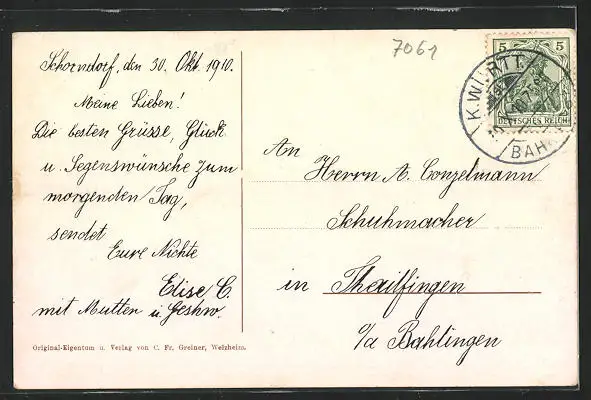 7061
Schorndorf, den 30. Okt. 1910.
Meine Lieben!
Die besten Grüsse, Glück
u. Segenswünsche zum
morgenden Tag,
sendet
Eure Nichte
Elise C.
mit Mutter u. Geshw.
Original-Eigentum u. Verlag von C. Fr. Greiner, Welzheim.
5 5
DEUTSCHES REICH
K. WÜRTT.
BAH
An
Herrn A. Conzelmann
Schuhmacher
in Thailfingen
o/a Bahlingen